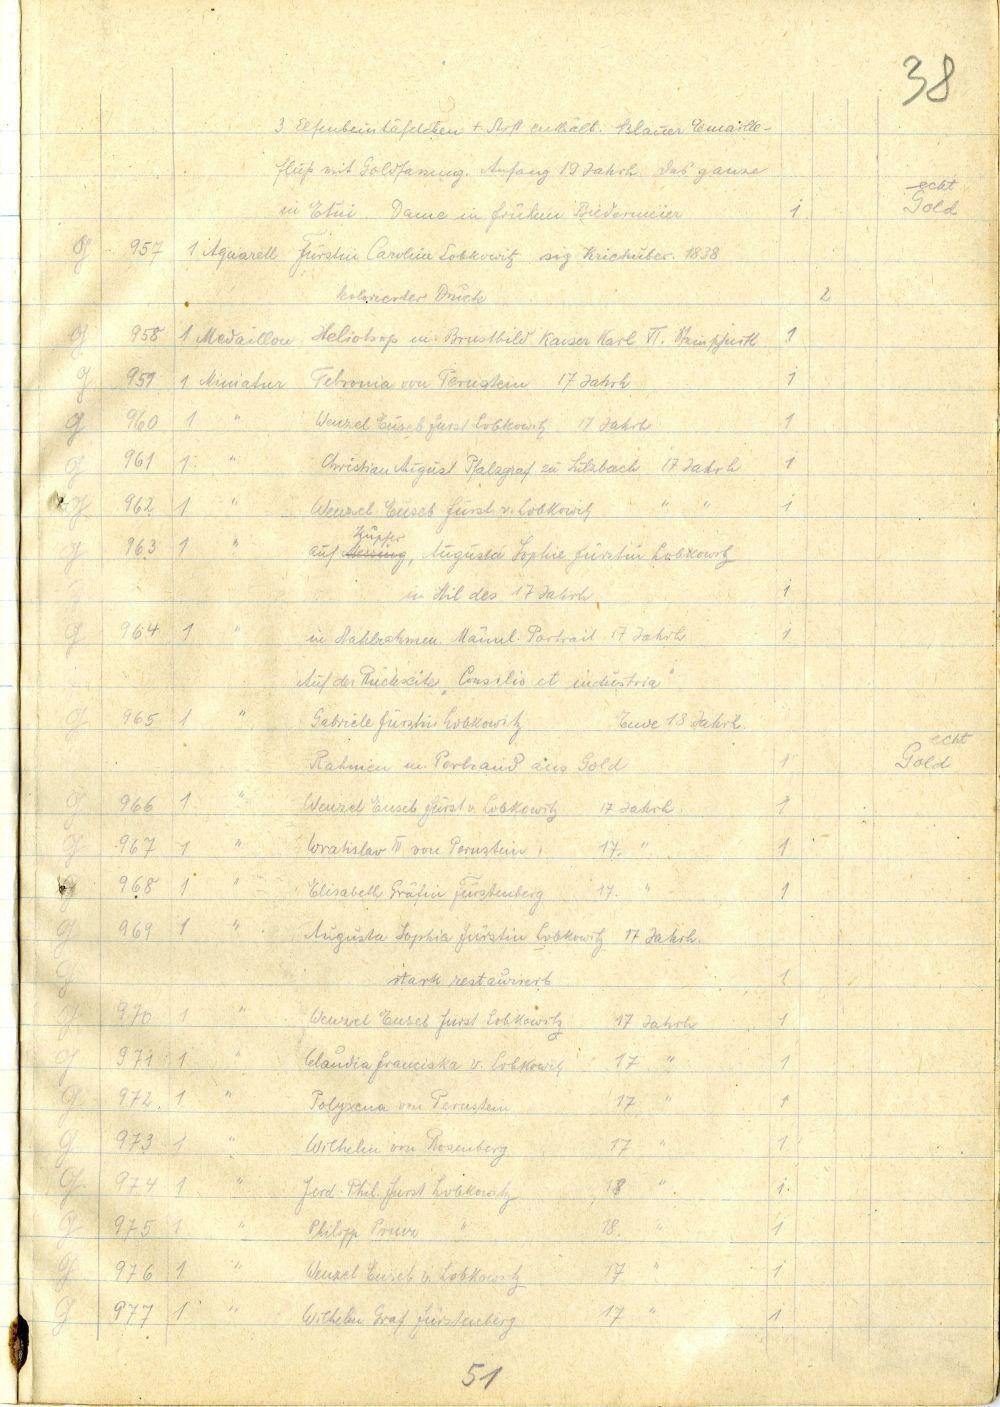 38
3 Elfenbeintäfelchen + Stift enthält. Blauer Emaille-
fluß mit Goldfassung. Anfang 19 Jahrh. Das ganze
in Etui. Dame in frühem Biedermeier 1 echt Gold
G 957 1 Aquarell Fürstin Carolin Lobkowitz sig Kriehuber. 1838
kolorierter Druck 2
G 958 1 Medaillon Heliotrop m. Brustbild Kaiser Karl VI. 1
G 959 1 Miniatur Febronia von Pernstein 17 Jahrh 1
G 960 1 " Wenzel Euseb Fürst Lobkowitz 17 Jahrh 1
G 961 1 " Christian August Pfalzgraf zu Sulzbach 17 Jahrh 1
G 962 1 " Wenzel Euseb Fürst v. Lobkowitz " " 1
G 963 1 " auf Messing Kupfer, Augusta Sophie Fürstin Lobkowitz
im Stil des 17 Jahrh 1
G 964 1 " in Stahlrahmen. Männl. Portrait 17 Jahrh 1
Auf der Rückseite „Consilio et industria"
G 965 1 " Gabriele Fürstin Lobkowitz Ende 18 Jahrh.
Rahmen aus Gold 1 echt Gold
G 966 1 " Wenzel Euseb Fürst v. Lobkowitz 17 Jahrh. 1
G 967 1 " Wratislav II von Pernstein 17. " 1
G 968 1 " Elisabeth Gräfin Fürstenberg 17. " 1
G 969 1 " Augusta Sophia Fürstin Lobkowitz 17 Jahrh.
G stark restauriert 1
G 970 1 " Wenzel Euseb Fürst Lobkowitz 17 Jahrh 1
G 971 1 " Claudia Franciska v. Lobkowitz 17 " 1
G 972 1 " Polyxena von Pernstein 17 " 1
G 973 1 " Wilhelm von Rosenberg 17 " 1
G 974 1 " Ferd. Phil. Fürst Lobkowitz 18 " 1
G 975 1 " Philipp Prinz " 18. " 1
G 976 1 " Wenzel Euseb v. Lobkowitz 17 " 1
G 977 1 " Wilhelm Graf Fürstenberg 17 " 1
51